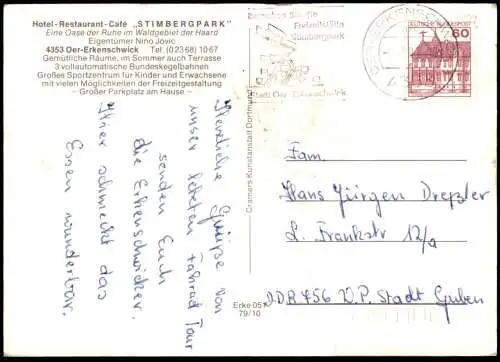 Hotel-Restaurant-Café „STIMBERGPARK"
Eine Oase der Ruhe im Waldgebiet der Haard
Eigentümer Nino Jovic
4353 Oer-Erkenschwick Tel. (0 23 68) 10 67
Gemütliche Räume, im Sommer auch Terrasse
3 vollautomatische Bundeskegelbahnen
Großes Sportzentrum für Kinder und Erwachsene
mit vielen Möglichkeiten der Freizeitgestaltung
– Großer Parkplatz am Hause –
Herzliche Grüße von
unser letzten Fahrrad Tour
senden Euch
die Erkenschwicker.
Hier schmeckt das
Essen wunderbar.
Cramers Kunstanstalt Dortmund
Erke 051
79/10
Besuchen Sie die
Freizeitstätte
Stimbergpark
Stadt Oer-Erkenschwick
OER-ERKENSCHWICK
DEUTSCHE BUNDESPOST
60
Fam.
Hans Jürgen Dreßler
L. Frankstr 12/a
DDR 756 W. P. Stadt Guben